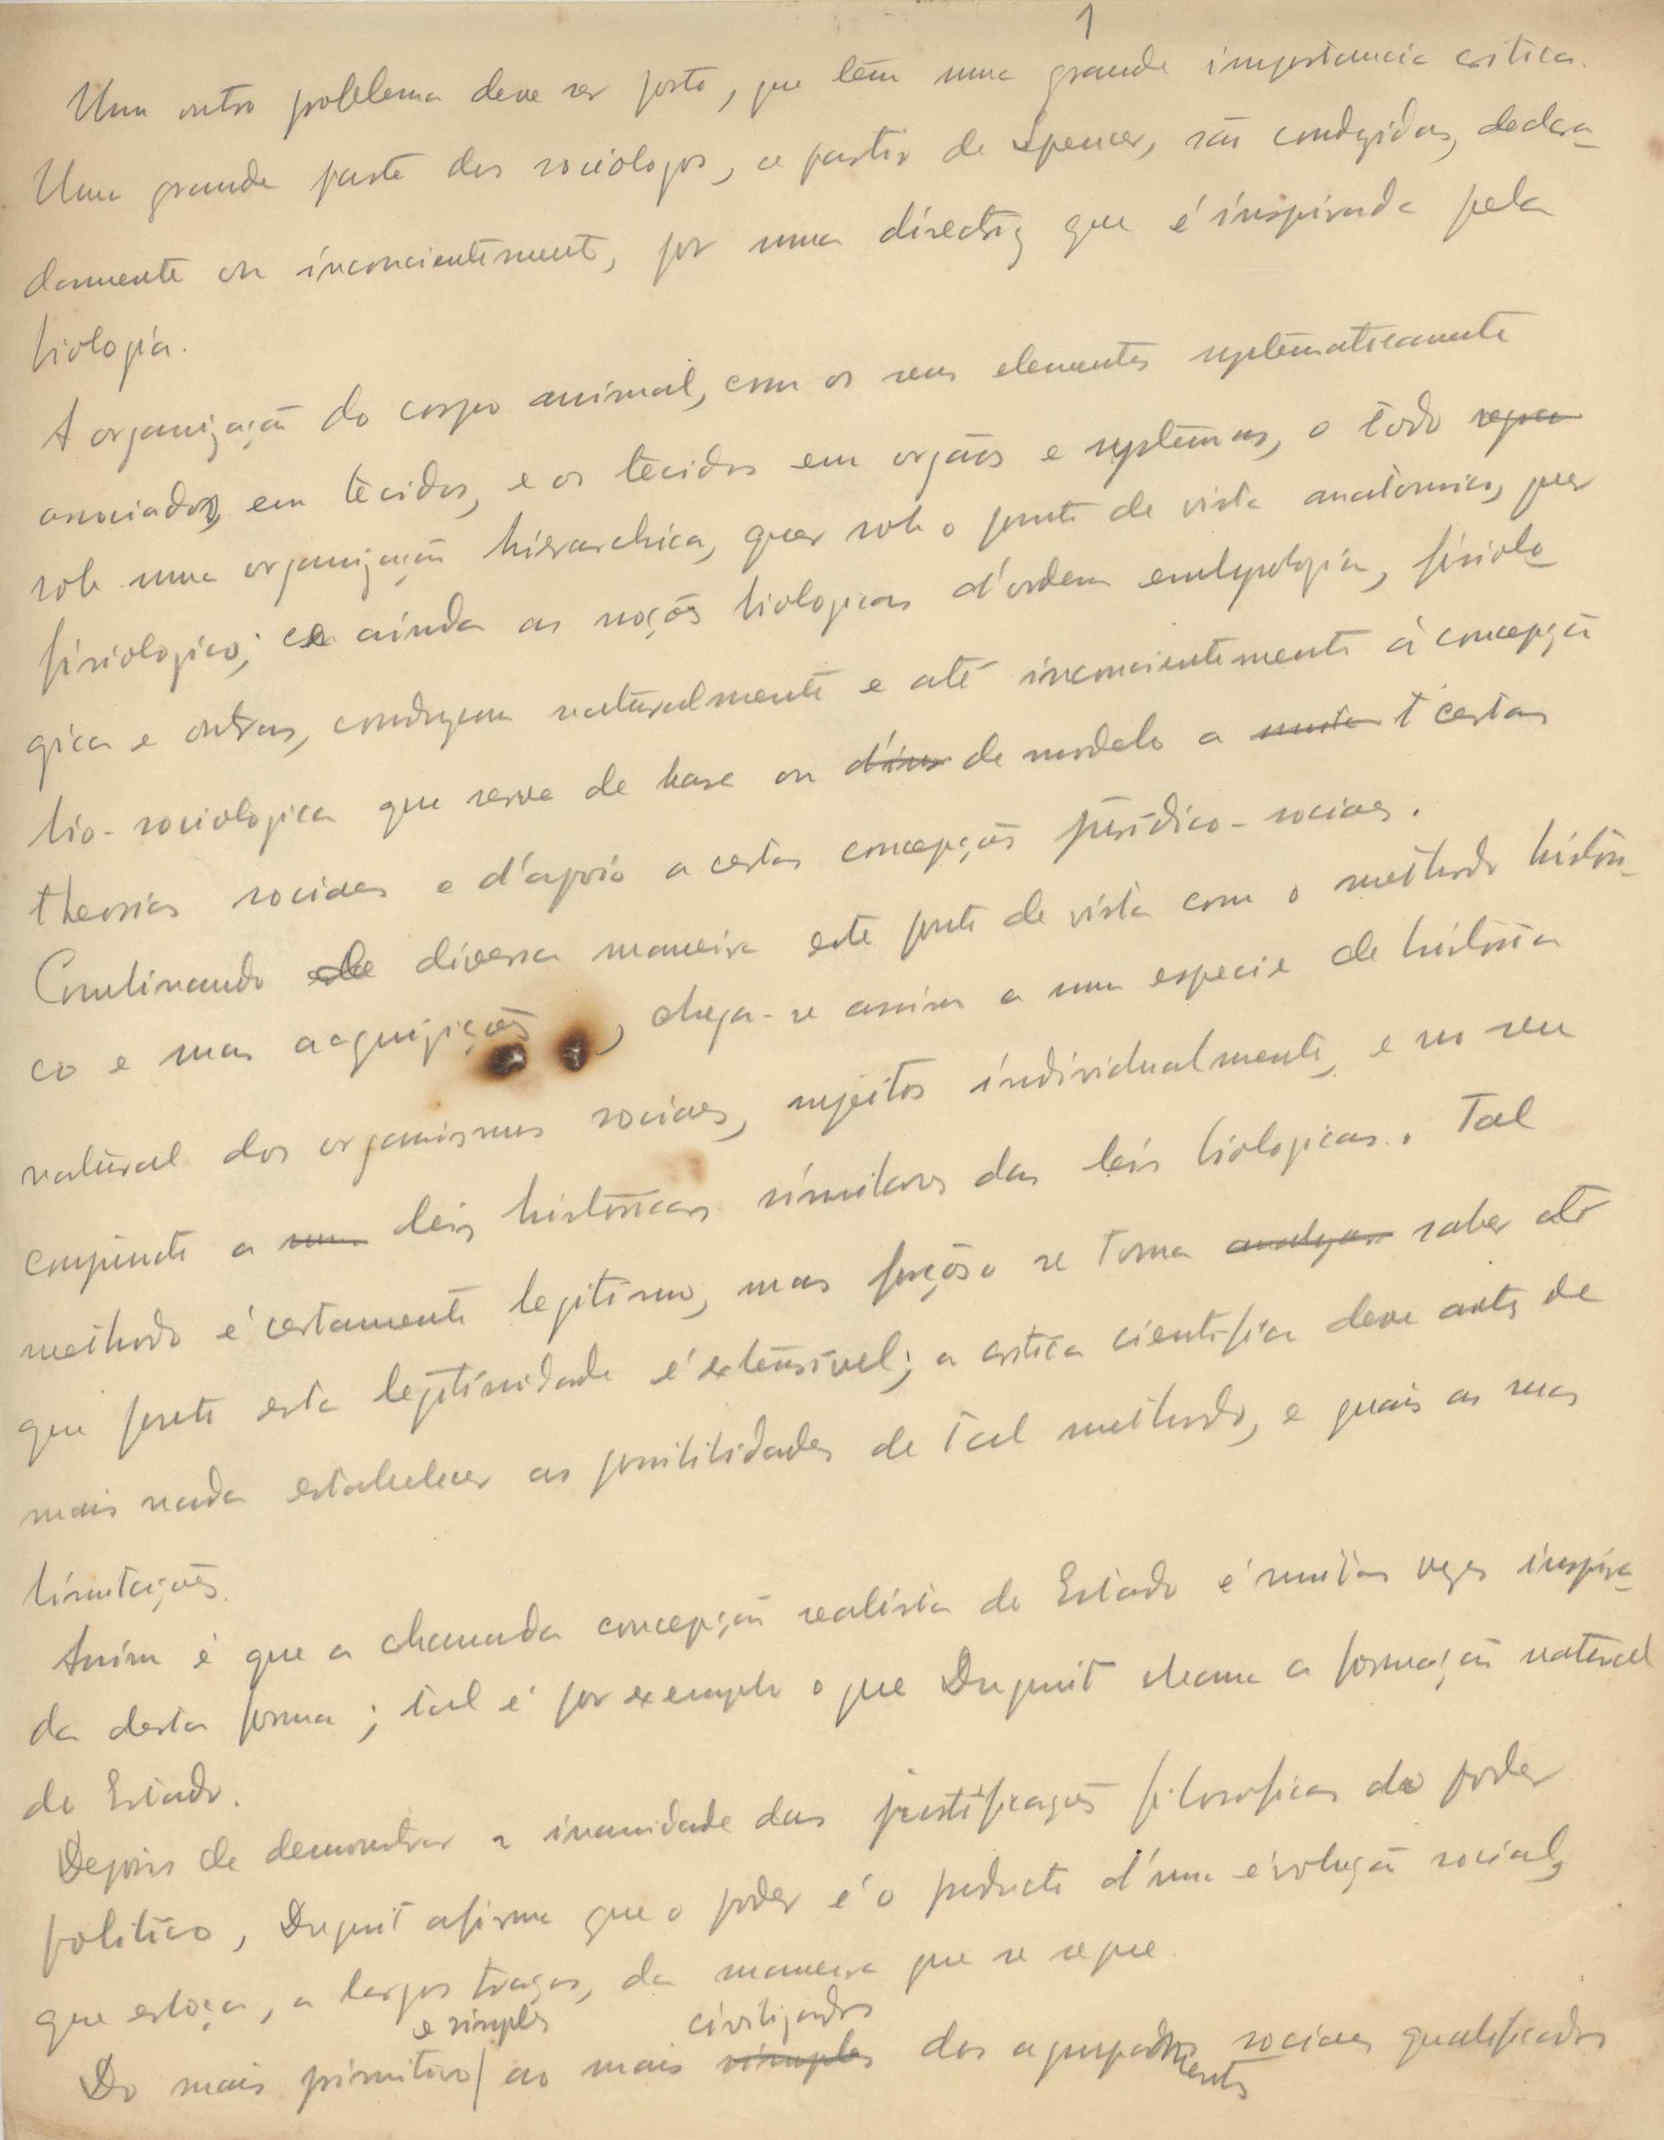 1
Um outro problema deve ser posto, que têm uma grande importancia critica.
Uma grande parte dos sociologos, a partir de Spencer, são conduzidos, declara-
damente ou inconcientemente, por uma directriz que é inspirada pela
biologia.
A organização do corpo animal, com os seus elementos systematicamente
associados, em tecidos, e os tecidos em orgãos e systemas, o todo
sob uma organização hierarchica, quer sob o ponto de vista anatomico, quer
fisiologico; e ainda as noções biologicas d'ordem embryologica, fisiolo-
gica e outras, conduzem naturalmente e até inconcientemente á concepção
bio-sociologica que serve de base ou de modelo a certas
theorias sociaes e d'apoio a certas concepções juridico-sociaes.
Combinando de diversa maneira este ponto de vista com o methodo histori-
co e suas acquizições, chega-se assim a uma especie de historia
natural dos organismos sociaes, sujeitos individualmente, e no seu
conjuncto a leis historicas similares das leis biologicas. Tal
methodo é certamente legitimo, mas forçoso se torna saber até
que ponto esta legitimidade é extensivel; a critica cientifica deve antes de
mais nada estabelecer as possibilidades de tal methodo, e quais as suas
limitações.
Assim é que a chamada concepção realista do Estado é muitas vezes inspira-
da desta forma; tal é por exemplo o que Duguit chama a formação natural
do Estado.
Depois de demonstrar a inanidade das justificações filosoficas do poder
politico, Duguit afirma que o poder é o producto d'uma evolução social,
que esboça, a largos traços, da maneira que se segue.
e simples civilizados
Do mais primitivo ao mais simples dos agrupamentos sociaes qualificados